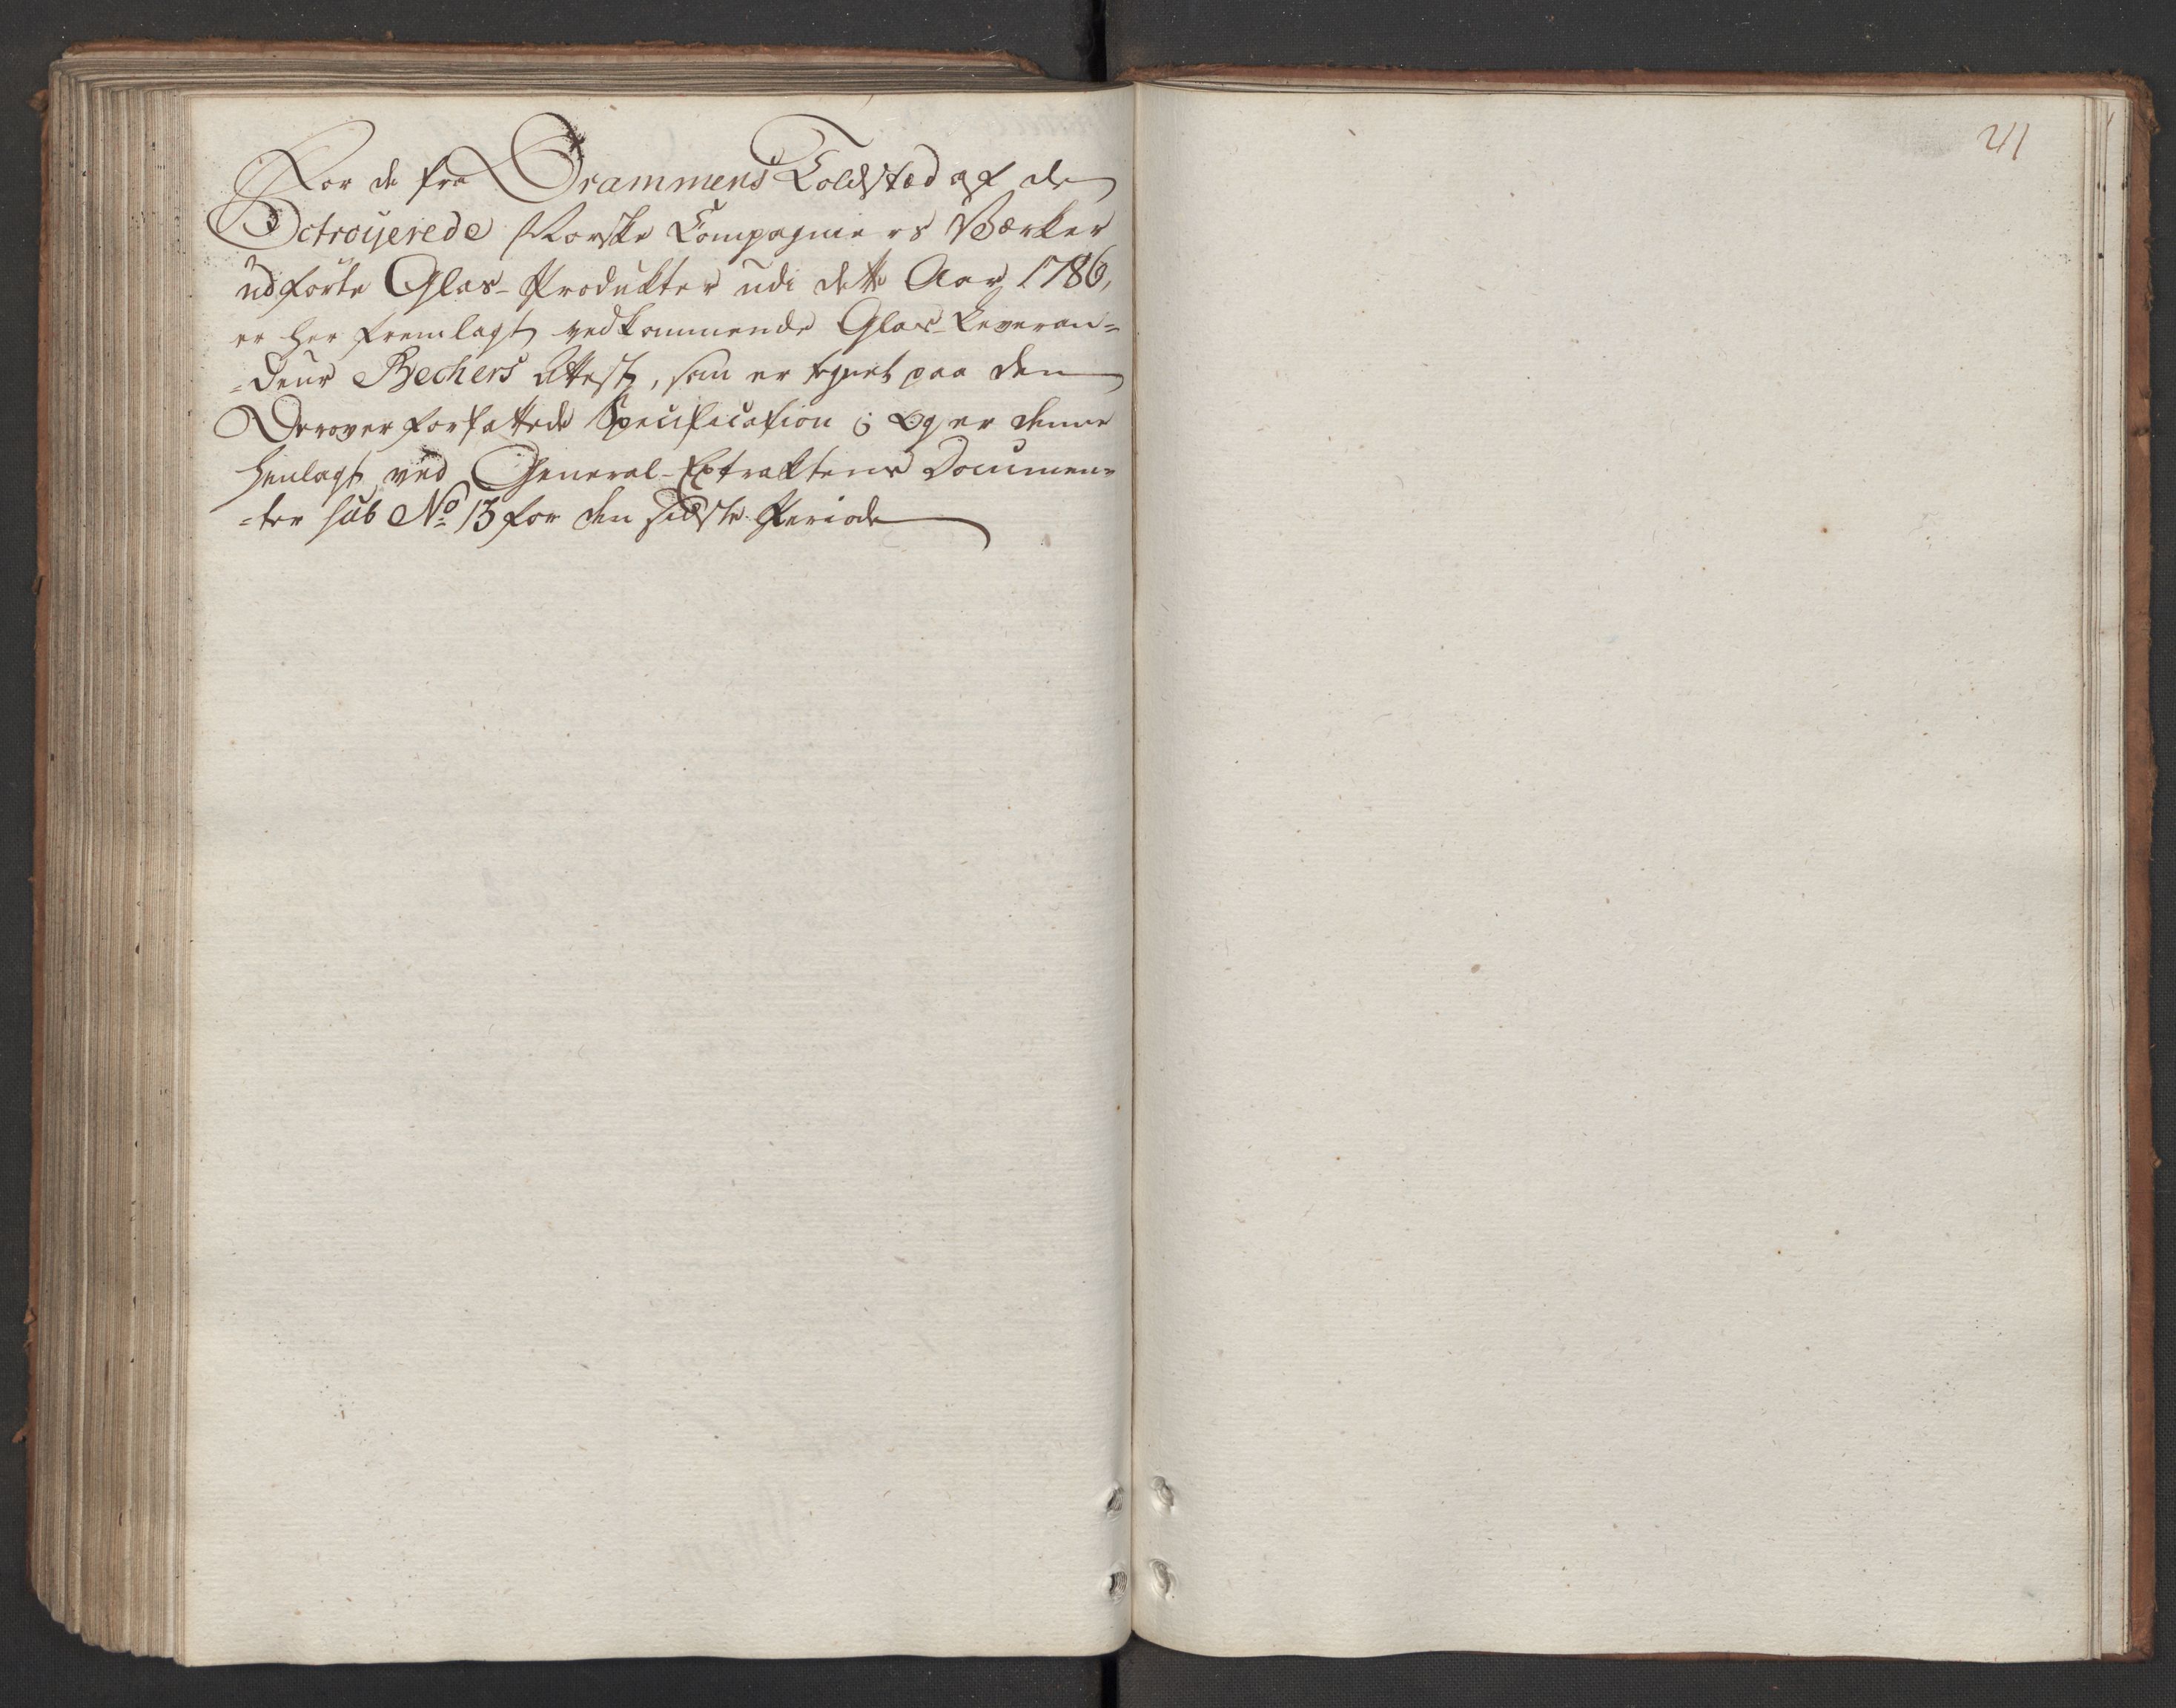 For de fra Drammens Toldsted af de
Octroijerede Norske Compagniers Værker
udförte Glas-Produkter udi dette Aar 1786,
er her fremlagt vedkommende Glas-Leveran=
=deurs Bechers Attest, som er tegnet paa den
Derover forfattede Specification; Og er denne
henlagt ved General-Extraktens Documen=
=ter sub No 13 for den sidste Periode
241